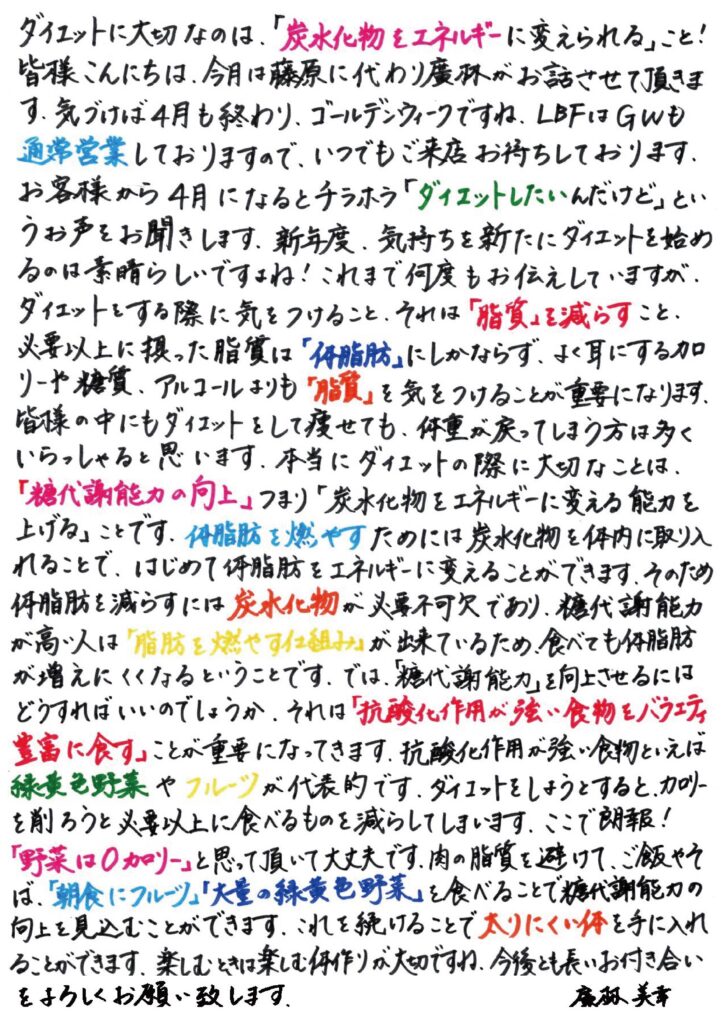 ダイエットに大切なのは、「炭水化物をエネルギーに変えられる」こと！
皆様こんにちは、今月は藤原に代わり廣林がお話させて頂きま
す。気づけば4月も終わり、ゴールデンウィークですね、LBFはGWも
通常営業しておりますので、いつでもご来店お待ちしております。
お客様から4月になるとチラホラ「ダイエットしたいんだけど」とい
うお声をお聞きします。新年度、気持ちを新たにダイエットを始め
るのは素晴らしいですよね！これまで何度もお伝えしていますが、
ダイエットをする際に気をつけること、それは「脂質」を減らすこと、
必要以上に摂った脂質は「体脂肪」にしかならず、よく耳にするカロ
リーや糖質、アルコールよりも「脂質」を気をつけることが重要になります。
皆様の中にもダイエットをして痩せても、体重が戻ってしまう方は多く
いらっしゃると思います。本当にダイエットの際に大切なことは、
「糖代謝能力の向上」つまり「炭水化物をエネルギーに変える能力を
上げる」ことです。体脂肪を燃やすためには炭水化物を体内に取り入
れることで、はじめて体脂肪をエネルギーに変えることができます。そのため
体脂肪を減らすには炭水化物が必要不可欠であり、糖代謝能力
が高い人は「脂肪を燃やす仕組み」が出来ているため、食べても体脂肪
が増えにくくなるということです。では、「糖代謝能力」を向上させるには
どうすればいいのでしょうか、それは「抗酸化作用が強い食物をバラエティ
豊富に食す」ことが重要になってきます。抗酸化作用が強い食物といえば
緑黄色野菜やフルーツが代表的です。ダイエットをしようとすると、カロリー
を削ろうと必要以上に食べるものを減らしてしまいます。ここで朗報！
「野菜は0カロリー」と思って頂いて大丈夫です。肉の脂質を避けて、ご飯やそ
ば、「朝食にフルーツ」「大量の緑黄色野菜」を食べることで糖代謝能力の
向上を見込むことができます。これを続けることで太りにくい体を手に入れ
ることができます。楽しむときは楽しむ体作りが大切ですね。今後とも長いお付き合い
をよろしくお願い致します。 廣林 美幸